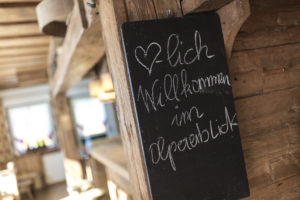 ♡-lich
Willkommen
im
Alpenblick